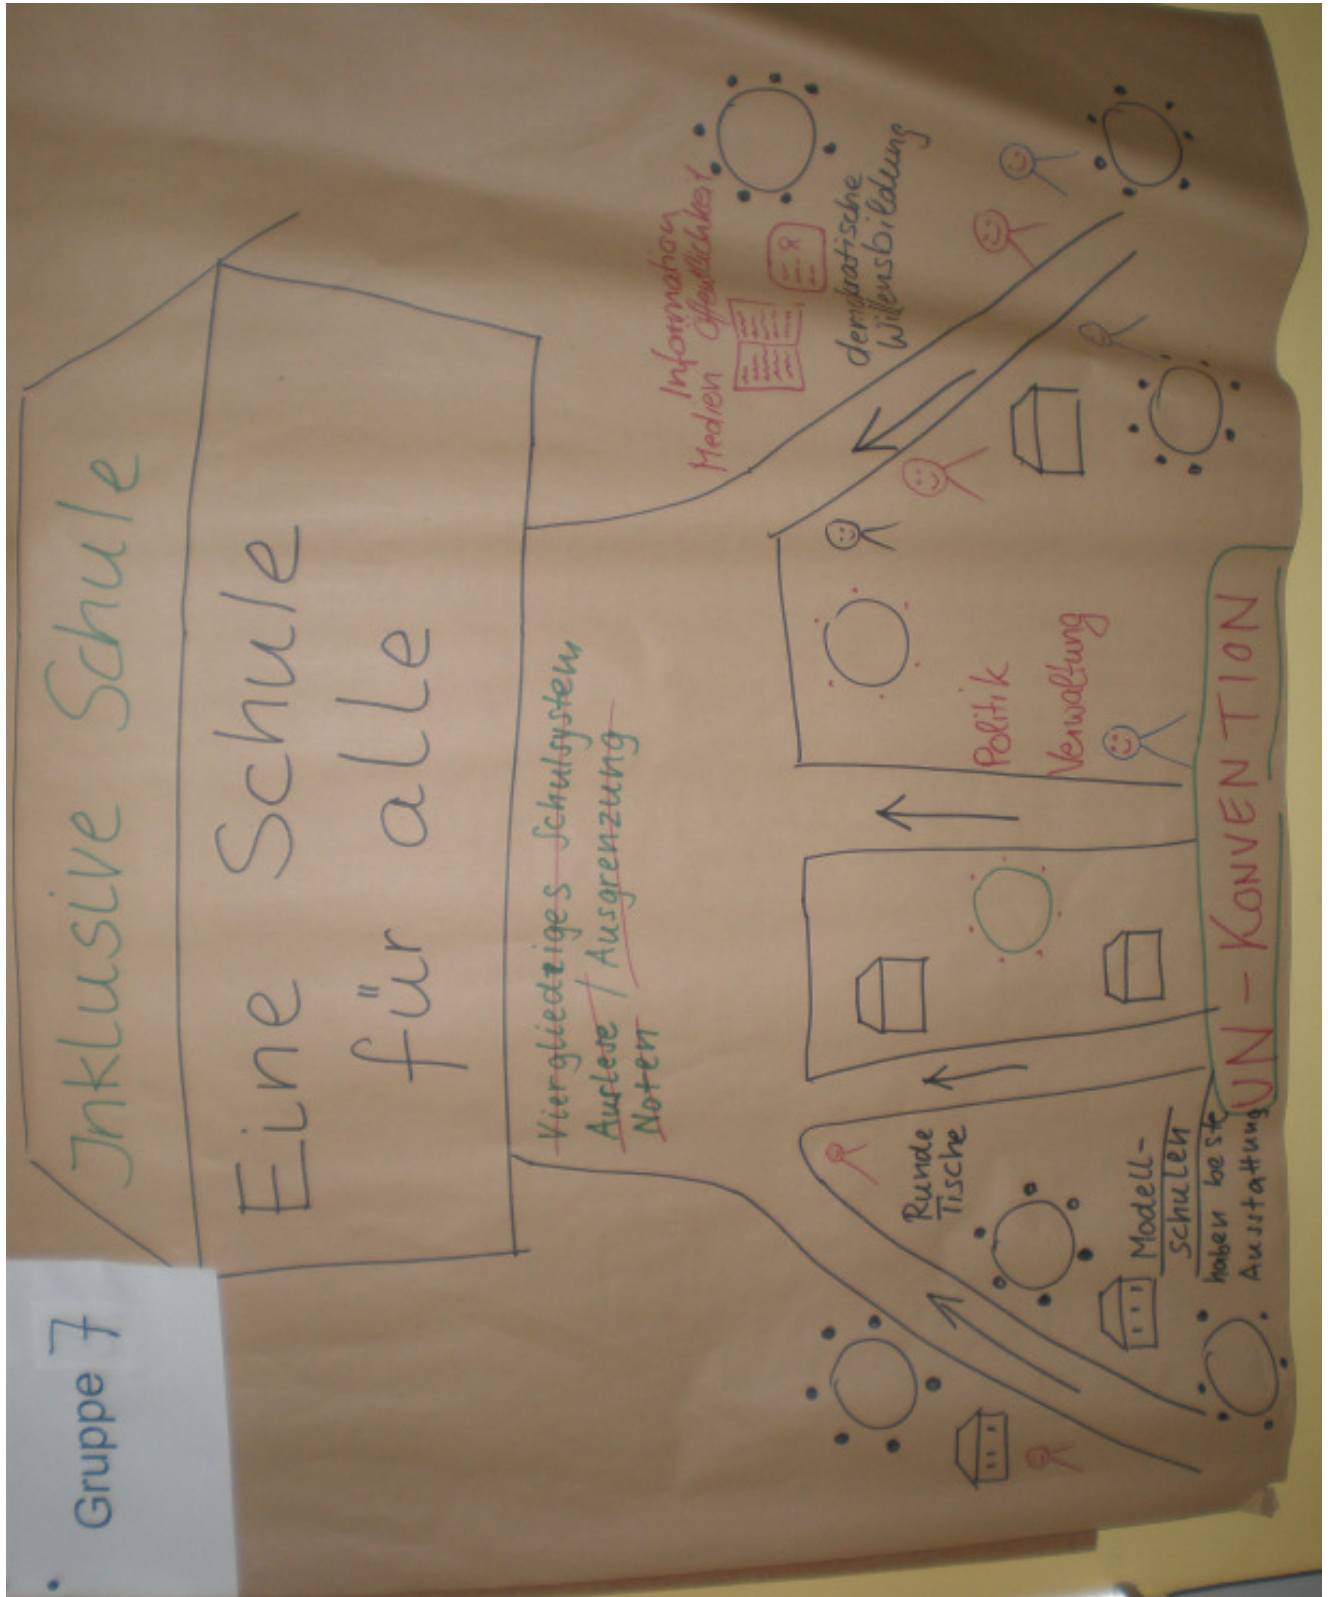 Gruppe 7
Inklusive Schule
Eine Schule
für alle
Viergliedriges Schulsystem
Auslese / Ausgrenzung
Noten
Information
Medien Öffentlichkeit
demokratische
Willensbildung
Runde
Tische
Politik
Verwaltung
Modell-
schulen
haben beste
Ausstattung
UN-KONVENTION